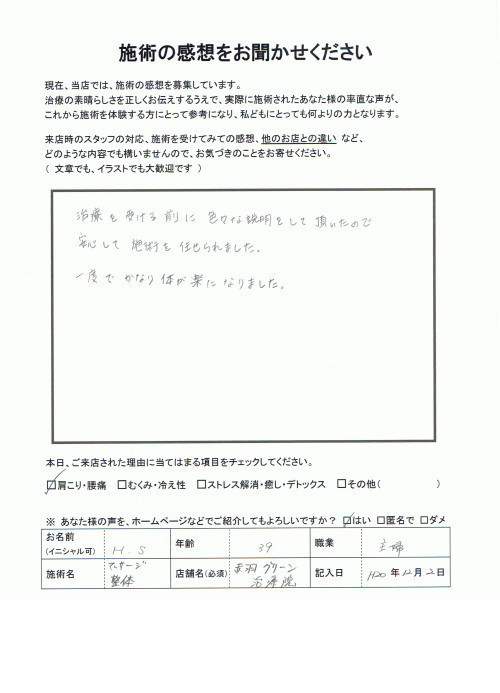 施術の感想をお聞かせください
現在、当店では、施術の感想を募集しています。
治療の素晴らしさを正しくお伝えするうえで、実際に施術されたあなた様の率直な声が、
これから施術を体験する方にとって参考になり、私どもにとっても何よりの力となります。
来店時のスタッフの対応、施術を受けてみての感想、他のお店との違い など、
どのような内容でも構いませんので、お気づきのことをお寄せください。
( 文章でも、イラストでも大歓迎です )
治療を受ける前に色々な説明をして頂いたので
安心して施術を任せられました。
一度でかなり体が楽になりました。
本日、ご来店された理由に当てはまる項目をチェックしてください。
☑肩こり・腰痛 □むくみ・冷え性 □ストレス解消・癒し・デトックス □その他( )
※ あなた様の声を、ホームページなどでご紹介してもよろしいですか? ☑はい □匿名で □ダメ
お名前 (イニシャル可) H.S 年齢 39 職業 主婦
施術名 マッサージ 整体 店舗名(必須) 赤羽グリーン 治療院 記入日 H20 年 12 月 2 日